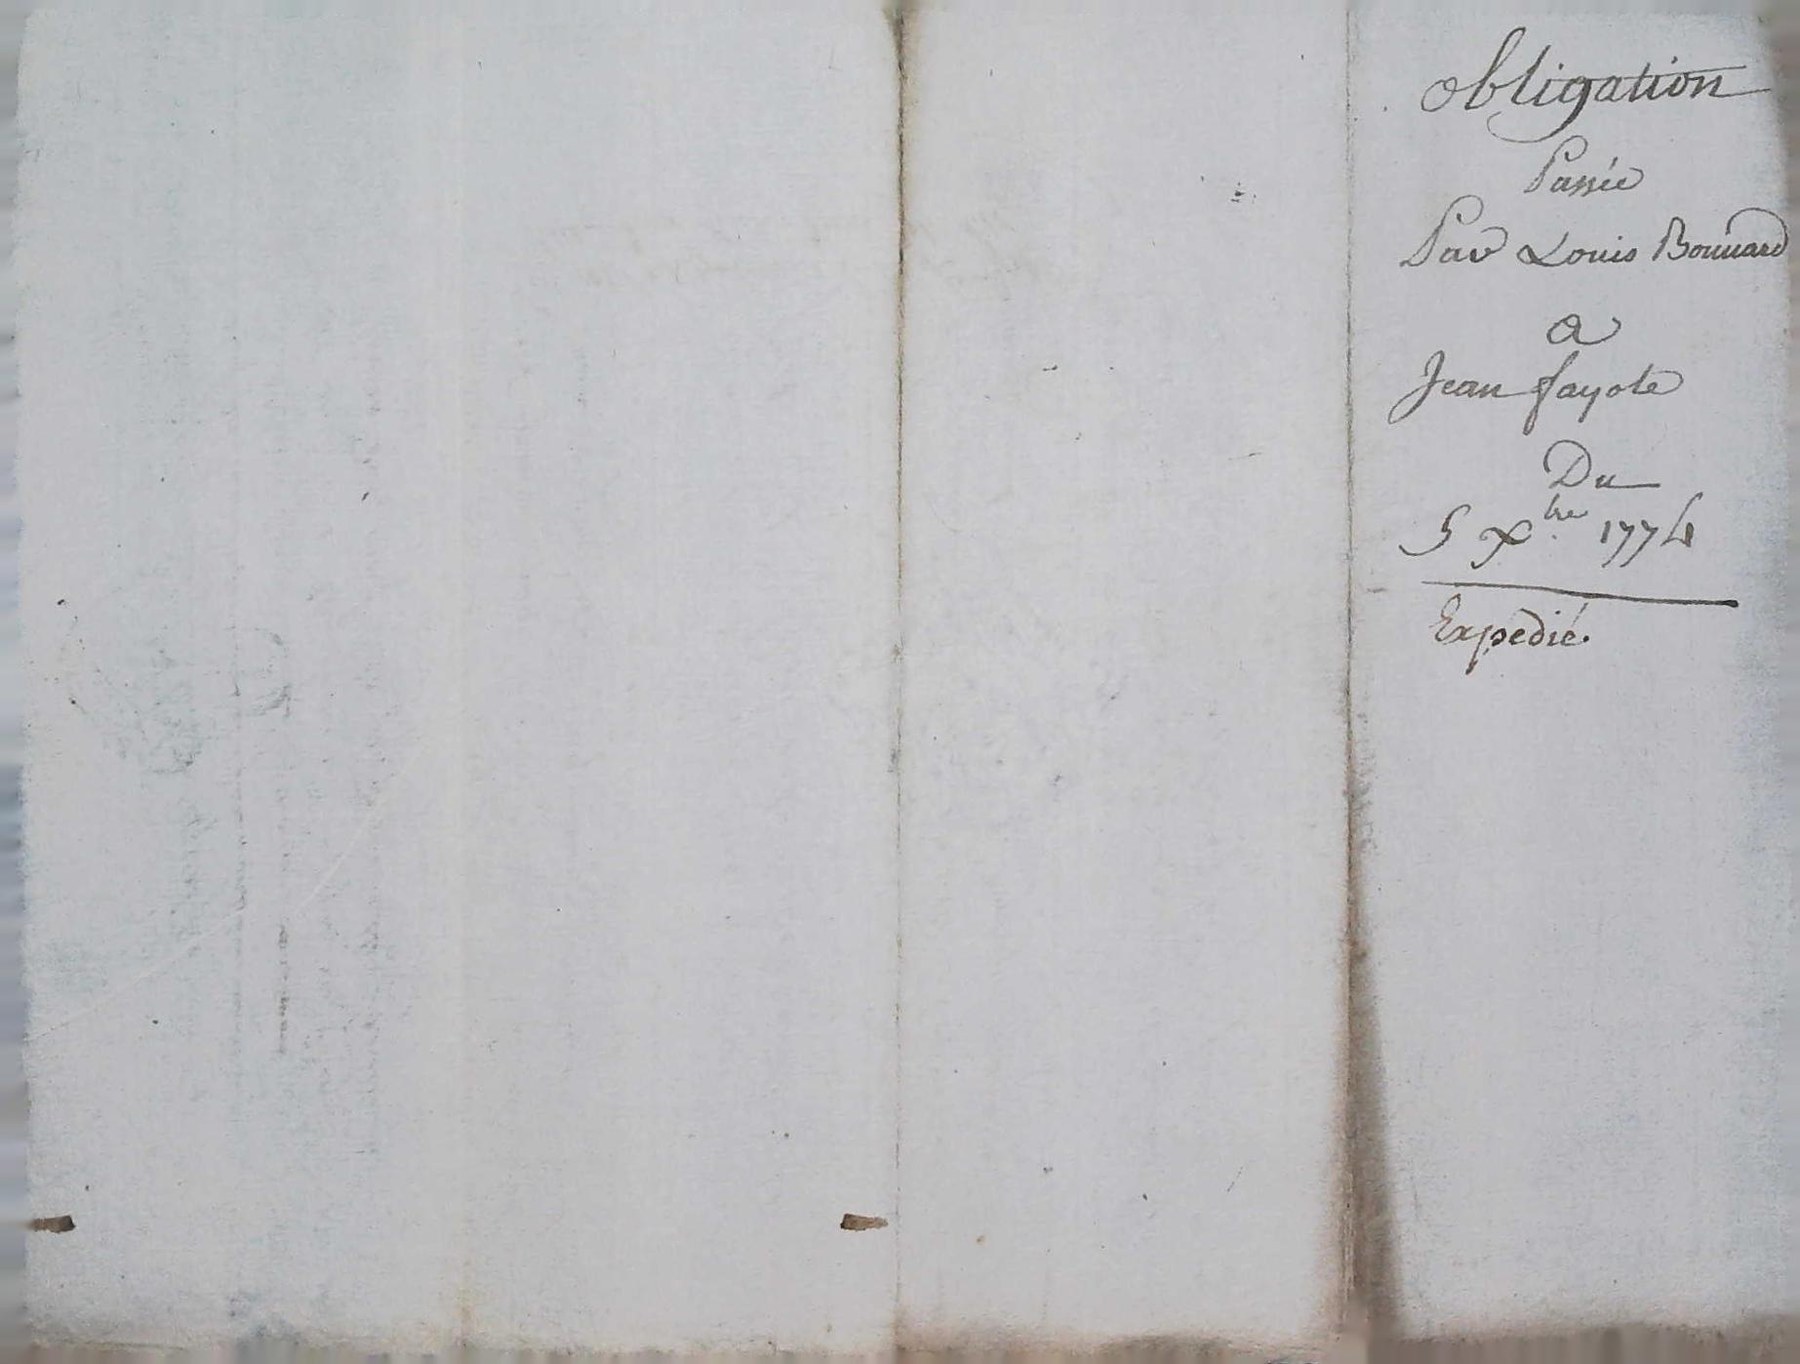 obligation
Passée
Par Louis Bonnard
a
Jean fayole
Du
5 Xbre 1774
Expedié.